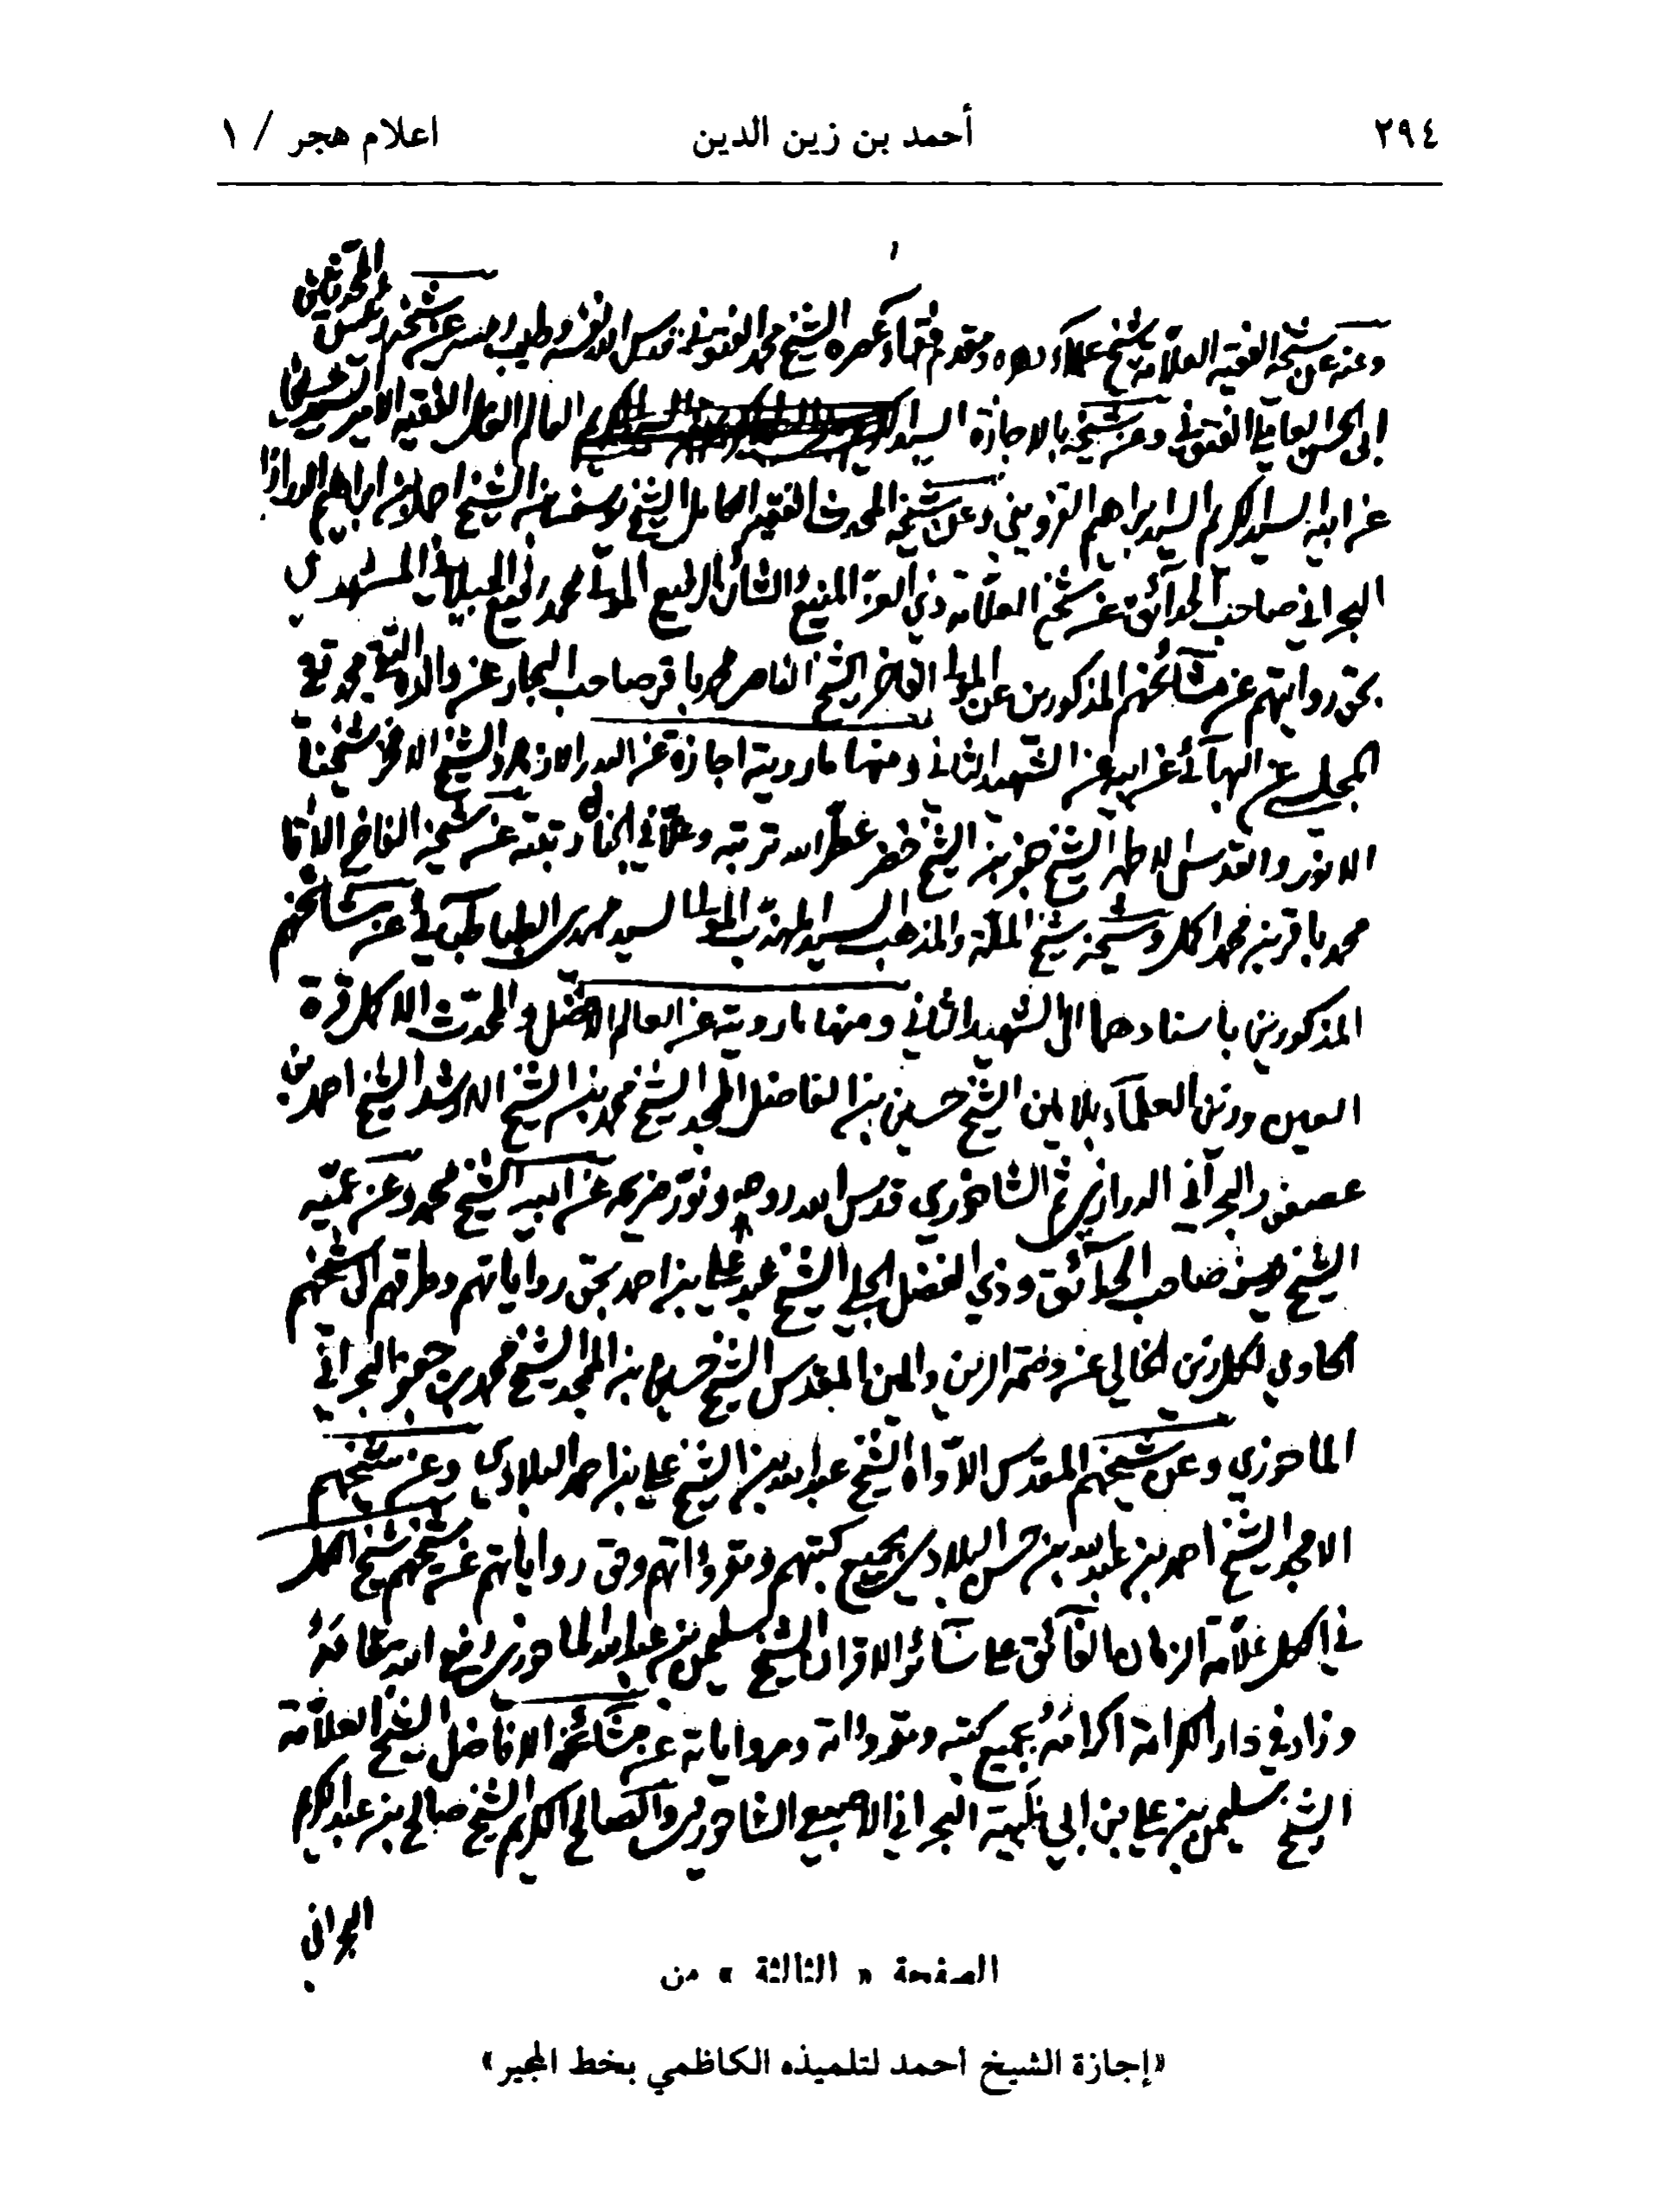 ٢٩٤ أحمد بن زين الدين اعلام هجر / ١
المحدثين
وعنه عن شيخه الفقيه العلامة شيخ علماء دهره ومقدم فقهاء عصره الشيخ محمد الفتوني قدس الله نفسه وطيب رمسه عن شيخه رئيس
ابي الحسن العاملي الفتوني وعن شيخه بالاجازة السيد العالم العامل الفقيه الامير السيد حسين
عن ابيه السيد الاكرم السيد ابراهيم القزويني وعن شيخه المحدث الفقيه الكامل الشيخ يوسف بن الشيخ احمد بن ابراهيم الدرازي
البحراني صاحب الحدائق عن شيخه العلامة ذي العز المنيع والشأن الرفيع المولى محمد رفيع الجيلاني المشهدي
بحق روايتهم عن مشائخهم المذكورين عن المولى الفاخر الشيخ الناصر محمد باقر صاحب البحار عن والده التقي محمد تقي
المجلسي عن البهائي عن ابيه عن الشهيد الثاني ومنها ما رويته اجازة عن البدر الازهر والشيخ الافخر شيخنا
الانور والقدس الاطهر الشيخ جعفر بن الشيخ خضر عطر الله تربته وعلا في الجنان رتبته عن شيخه الفاخر الآقا
محمد باقر بن محمد اكمل وشيخه شيخ الملة والمذهب السيد المهذب المولى السيد مهدي الطباطبائي عن مشائخهم
المذكورين باسنادهما الى الشهيد الثاني ومنها ما رويته عن العالم الافضل والمحدث الاكمل قرة
العين وزين العلماء بلا مين الشيخ حسين بن الفاضل الامجد الشيخ محمد بن الشيخ الارشد الشيخ احمد بن
عصفور البحراني الدرازي ثم الشاخوري قدس الله روحه ونور ضريحه عن ابيه الشيخ محمد وعن عميه
الشيخ يوسف صاحب الحدائق وذي الفضل الجلي الشيخ عبد علي بن احمد بحق رواياتهم وطرقهم الى شيخهم
الحاوي لكل زين الخالي عن وصمة الرين والمين المقدس الشيخ حسين بن الامجد الشيخ محمد بن جعفر البحراني
الماحوزي وعن شيخهم المقدس الاواه الشيخ عبد الله بن الشيخ علي بن احمد البلادي وعن شيخهم
الامجد الشيخ احمد بن عبد الله بن حسن البلادي بجميع كتبهم ومقرواتهم وحق رواياتهم عن شيخهم شيخ الكل
في الكل علامة الزمان الفائق على سائر الاقران الشيخ سليمن بن عبد الله الماحوزي رفع الله مقامه
وزاد في دار الكرامة اكرامه بجميع كتبه ومقرواته ومروياته عن مشائخه الافاضل الشيخ العلامة
الشيخ سليمن بن علي بن ابي ظبية البحراني الاصبعي الشاخوري والصالح الكريم الشيخ صالح بن عبد الكريم
البحراني
الصفحة « الثالثة » من
«إجازة الشيخ أحمد لتلميذه الكاظمي بخط المجيز»